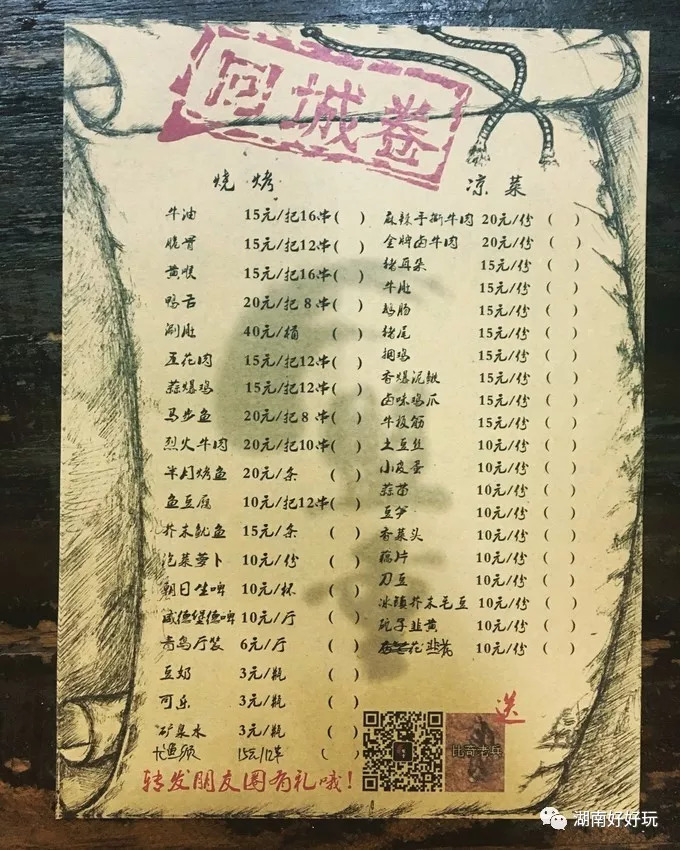 回城卷
烧烤
牛油 15元/把16串( )
脆骨 15元/把12串( )
黄喉 15元/把16串( )
鸭舌 20元/把8串( )
涮肚 40元/桶 ( )
五花肉 15元/把12串( )
蒜爆鸡 15元/把12串( )
马步鱼 20元/把8串( )
烈火牛肉 20元/把10串( )
半月烤鱼 20元/条 ( )
鱼豆腐 10元/把12串( )
芥末鱿鱼 15元/条 ( )
泡菜萝卜 10元/份 ( )
朝日生啤 10元/杯 ( )
威德堡德啤 10元/厅 ( )
青岛厅装 6元/厅 ( )
豆奶 3元/瓶 ( )
可乐 3元/瓶 ( )
矿泉水 3元/瓶 ( )
15元/12串 ( )
凉菜
麻辣手撕牛肉 20元/份 ( )
金牌卤牛肉 20元/份 ( )
猪耳朵 15元/份 ( )
牛肚 15元/份 ( )
鹅肠 15元/份 ( )
猪尾 15元/份 ( )
捆鸡 15元/份 ( )
香爆泥鳅 15元/份 ( )
卤味鸡爪 15元/份 ( )
牛板筋 15元/份 ( )
土豆丝 10元/份 ( )
小皮蛋 10元/份 ( )
蒜苗 10元/份 ( )
豆笋 10元/份 ( )
香菜头 10元/份 ( )
藕片 10元/份 ( )
刀豆 10元/份 ( )
冰镇芥末毛豆 10元/份 ( )
坑子韭黄 10元/份 ( )
花韭 10元/份 ( )
送
比奇老兵
转发朋友圈有礼哦！
湖南好好玩